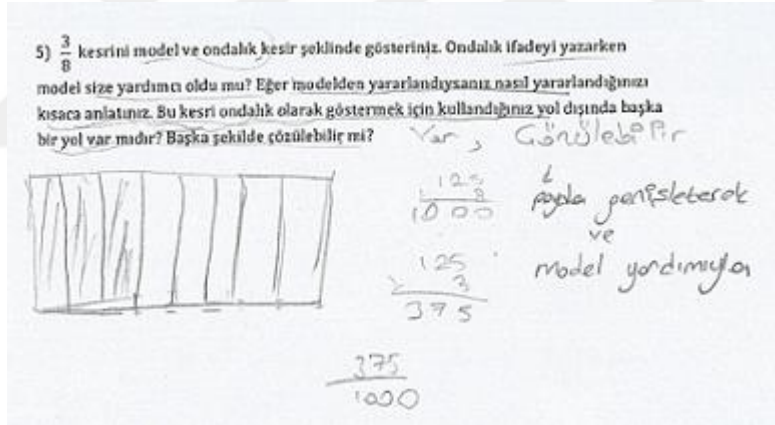 5) 3/8 kesrini model ve ondalık kesir şeklinde gösteriniz. Ondalık ifadeyi yazarken
model size yardımcı oldu mu? Eğer modelden yararlandıysanız nasıl yararlandığınızı
kısaca anlatınız. Bu kesri ondalık olarak göstermek için kullandığınız yol dışında başka
bir yol var mıdır? Başka şekilde çözülebilir mi?
Var,
125
8
1000
genişleterek
ve
model yardımıyla
125
x 3
375
375
1000